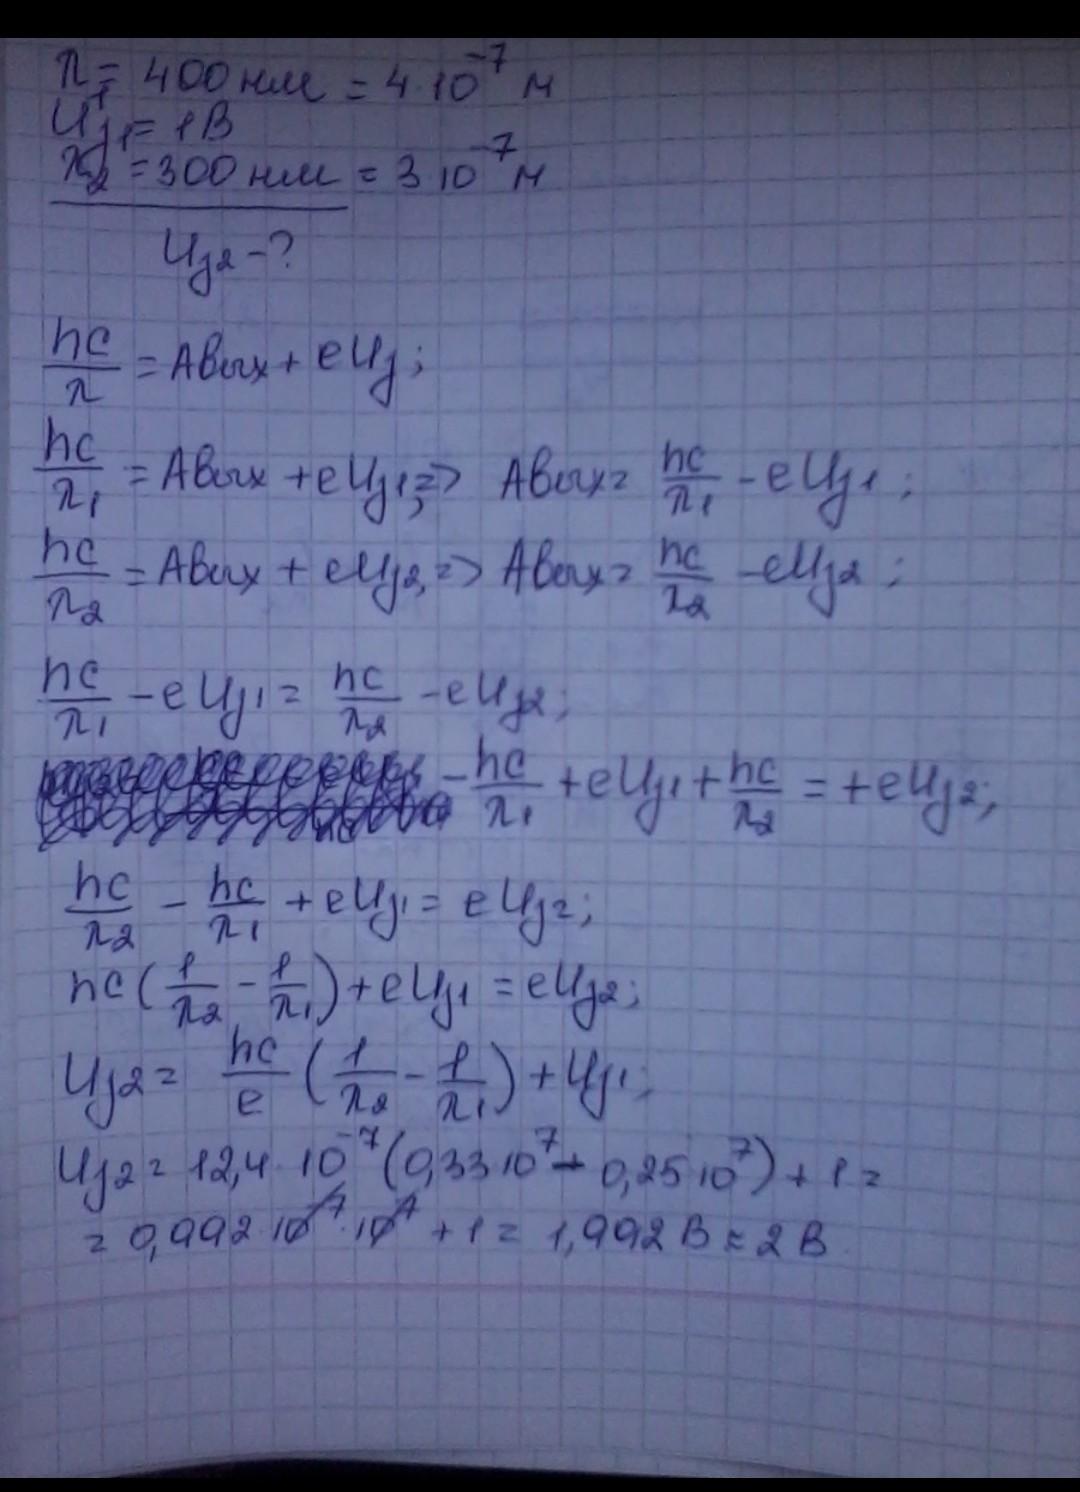 λ₁ = 400 нм = 4·10⁻⁷ м
Uз₁ = 1 В
λ₂ = 300 нм = 3·10⁻⁷ м
Uз₂ - ?
hc/λ = Aвых + eUз;
hc/λ₁ = Aвых + eUз₁; => Aвых = hc/λ₁ - eUз₁;
hc/λ₂ = Aвых + eUз₂, => Aвых = hc/λ₂ - eUз₂;
hc/λ₁ - eUз₁ = hc/λ₂ - eUз₂;
- hc/λ₁ + eUз₁ + hc/λ₂ = + eUз₂;
hc/λ₂ - hc/λ₁ + eUз₁ = eUз₂;
hc(1/λ₂ - 1/λ₁) + eUз₁ = eUз₂;
Uз₂ = hc/e (1/λ₂ - 1/λ₁) + Uз₁;
Uз₂ = 12,4·10⁻⁷(0,33·10⁷ - 0,25·10⁷) + 1 =
= 0,992·10⁻⁷·10⁷ + 1 = 1,992 В ≈ 2 В